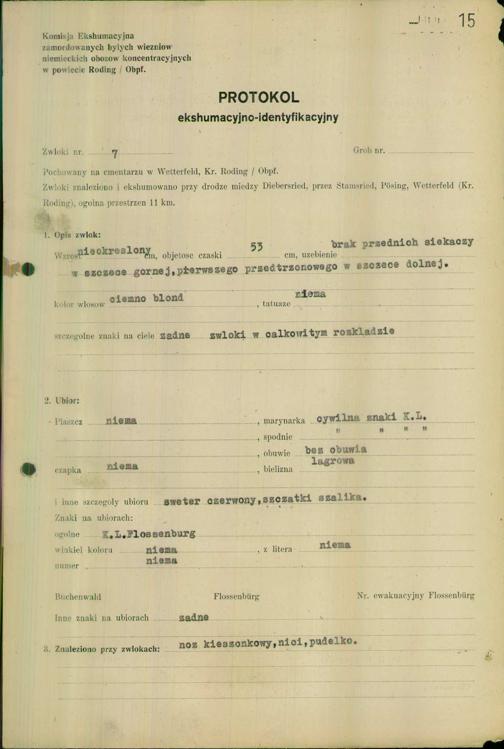 15
Komisja Ekshumacyjna
zamordowanych byłych wiezniow
niemieckich obozow koncentracyjnych
w powiecie Roding / Obpf.
PROTOKOL
ekshumacyjno-identyfikacyjny
Zwloki nr. 7 Grob nr.
Pochowany na cmentarzu w Wetterfeld, Kr. Roding / Obpf.
Zwloki znaleziono i ekshumowano przy drodze miedzy Diebersried, przez Stamsried, Pösing, Wetterfeld (Kr.
Roding), ogolna przestrzen 11 km.
1. Opis zwlok:
Wzrost nieokreslony cm, objetosc czaski 53 cm, uzebienie brak przednich siekaczy
w szczece gornej,pierwszego przedtrzonowego w szczece dolnej.
kolor wlosow ciemno blond , tatuaze niema
szczegolne znaki na ciele zadne zwloki w calkowitym rozkladzie
2. Ubior:
Plaszcz niema , marynarka cywilna znaki K.L.
, spodnie " " " "
, obuwie bez obuwia
czapka niema , bielizna lagrowa
i inne szczegoly ubioru sweter czerwony,szczatki szalika.
Znaki na ubiorach:
ogolne K.L.Flossenburg
winkiel koloru niema , z litera niema
numer niema
Buchenwald Flossenbürg Nr. ewakuacyjny Flossenbürg
Inne znaki na ubiorach zadne
3. Znaleziono przy zwlokach: noz kieszonkowy,nici,pudelko.